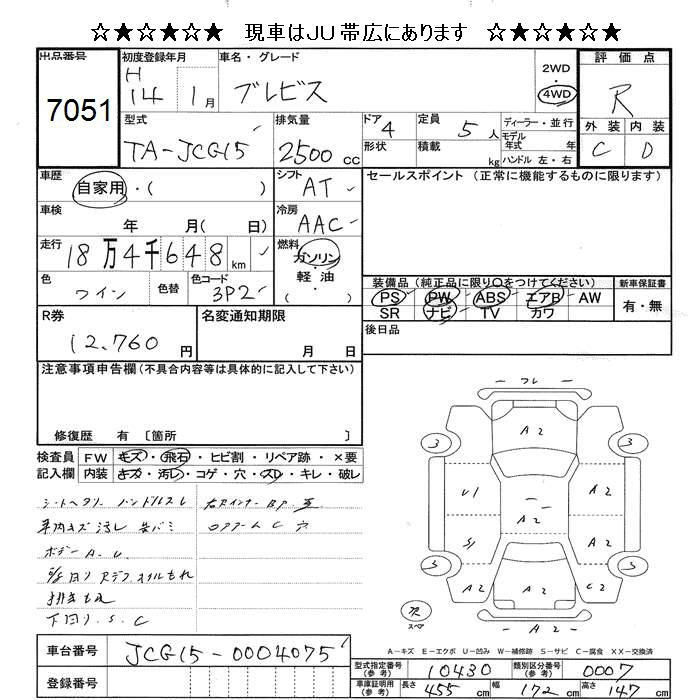 ☆★☆★☆★ 現車はJU帯広にあります ☆★☆★☆★
出品番号 7051
初度登録年月 H 14 1月
車名・グレード ブレビス
2WD 4WD
評価点 R
外装 内装
C D
型式 TA-JCG15
排気量 2500 cc
ドア 4
形状
定員 5人
積載 kg
ディーラー・並行
モデル年式 年
ハンドル 左・右
車歴 自家用・( )
シフト AT
セールスポイント (正常に機能するものに限ります)
車検 年 月( 日)
冷房 AAC
走行 18万4千648km
燃料 ガソリン 軽油 ・( )
色 ワイン
色替
色コード 3P2
装備品 (純正品に限り○をつけてください)
PS PW ABS エアB AW
SR ナビ TV カワ
新車保証書 有・無
R券 12,760 円
名変通知期限 月 日
後日品
注意事項申告欄 (不具合内容等は具体的に記入して下さい)
修復歴 有 〔箇所 〕
検査員記入欄
FW キズ・飛石・ヒビ割・リペア跡・×要
内装 キズ・汚レ・コゲ・穴・スレ・キレ・破レ
シートヘタリ ハンドルスレ
車内キズ汚レ
ボデーA.U
下回リ.S.C
フレ
A2
3 3
U1 A2
A2
S1 A2
3 3
A2 A2 C2
A2
スペア
A-キズ E-エクボ U-凹み W-補修跡 S-サビ C-腐食 XX-交換済
車台番号 JCG15-0004075
登録番号
型式指定番号(参考) 10430
類別区分番号(参考) 0007
車庫証明用(参考) 長さ 455cm 幅 172cm 高さ 147cm